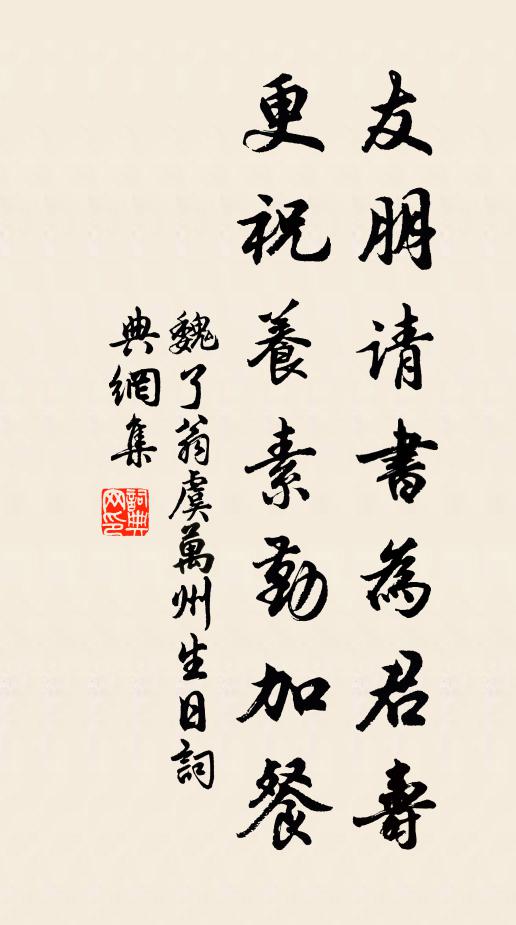 友朋请書為君壽
更祝養素勤加餐
魏了翁虞萬州生日詞
典網集
詞典网印